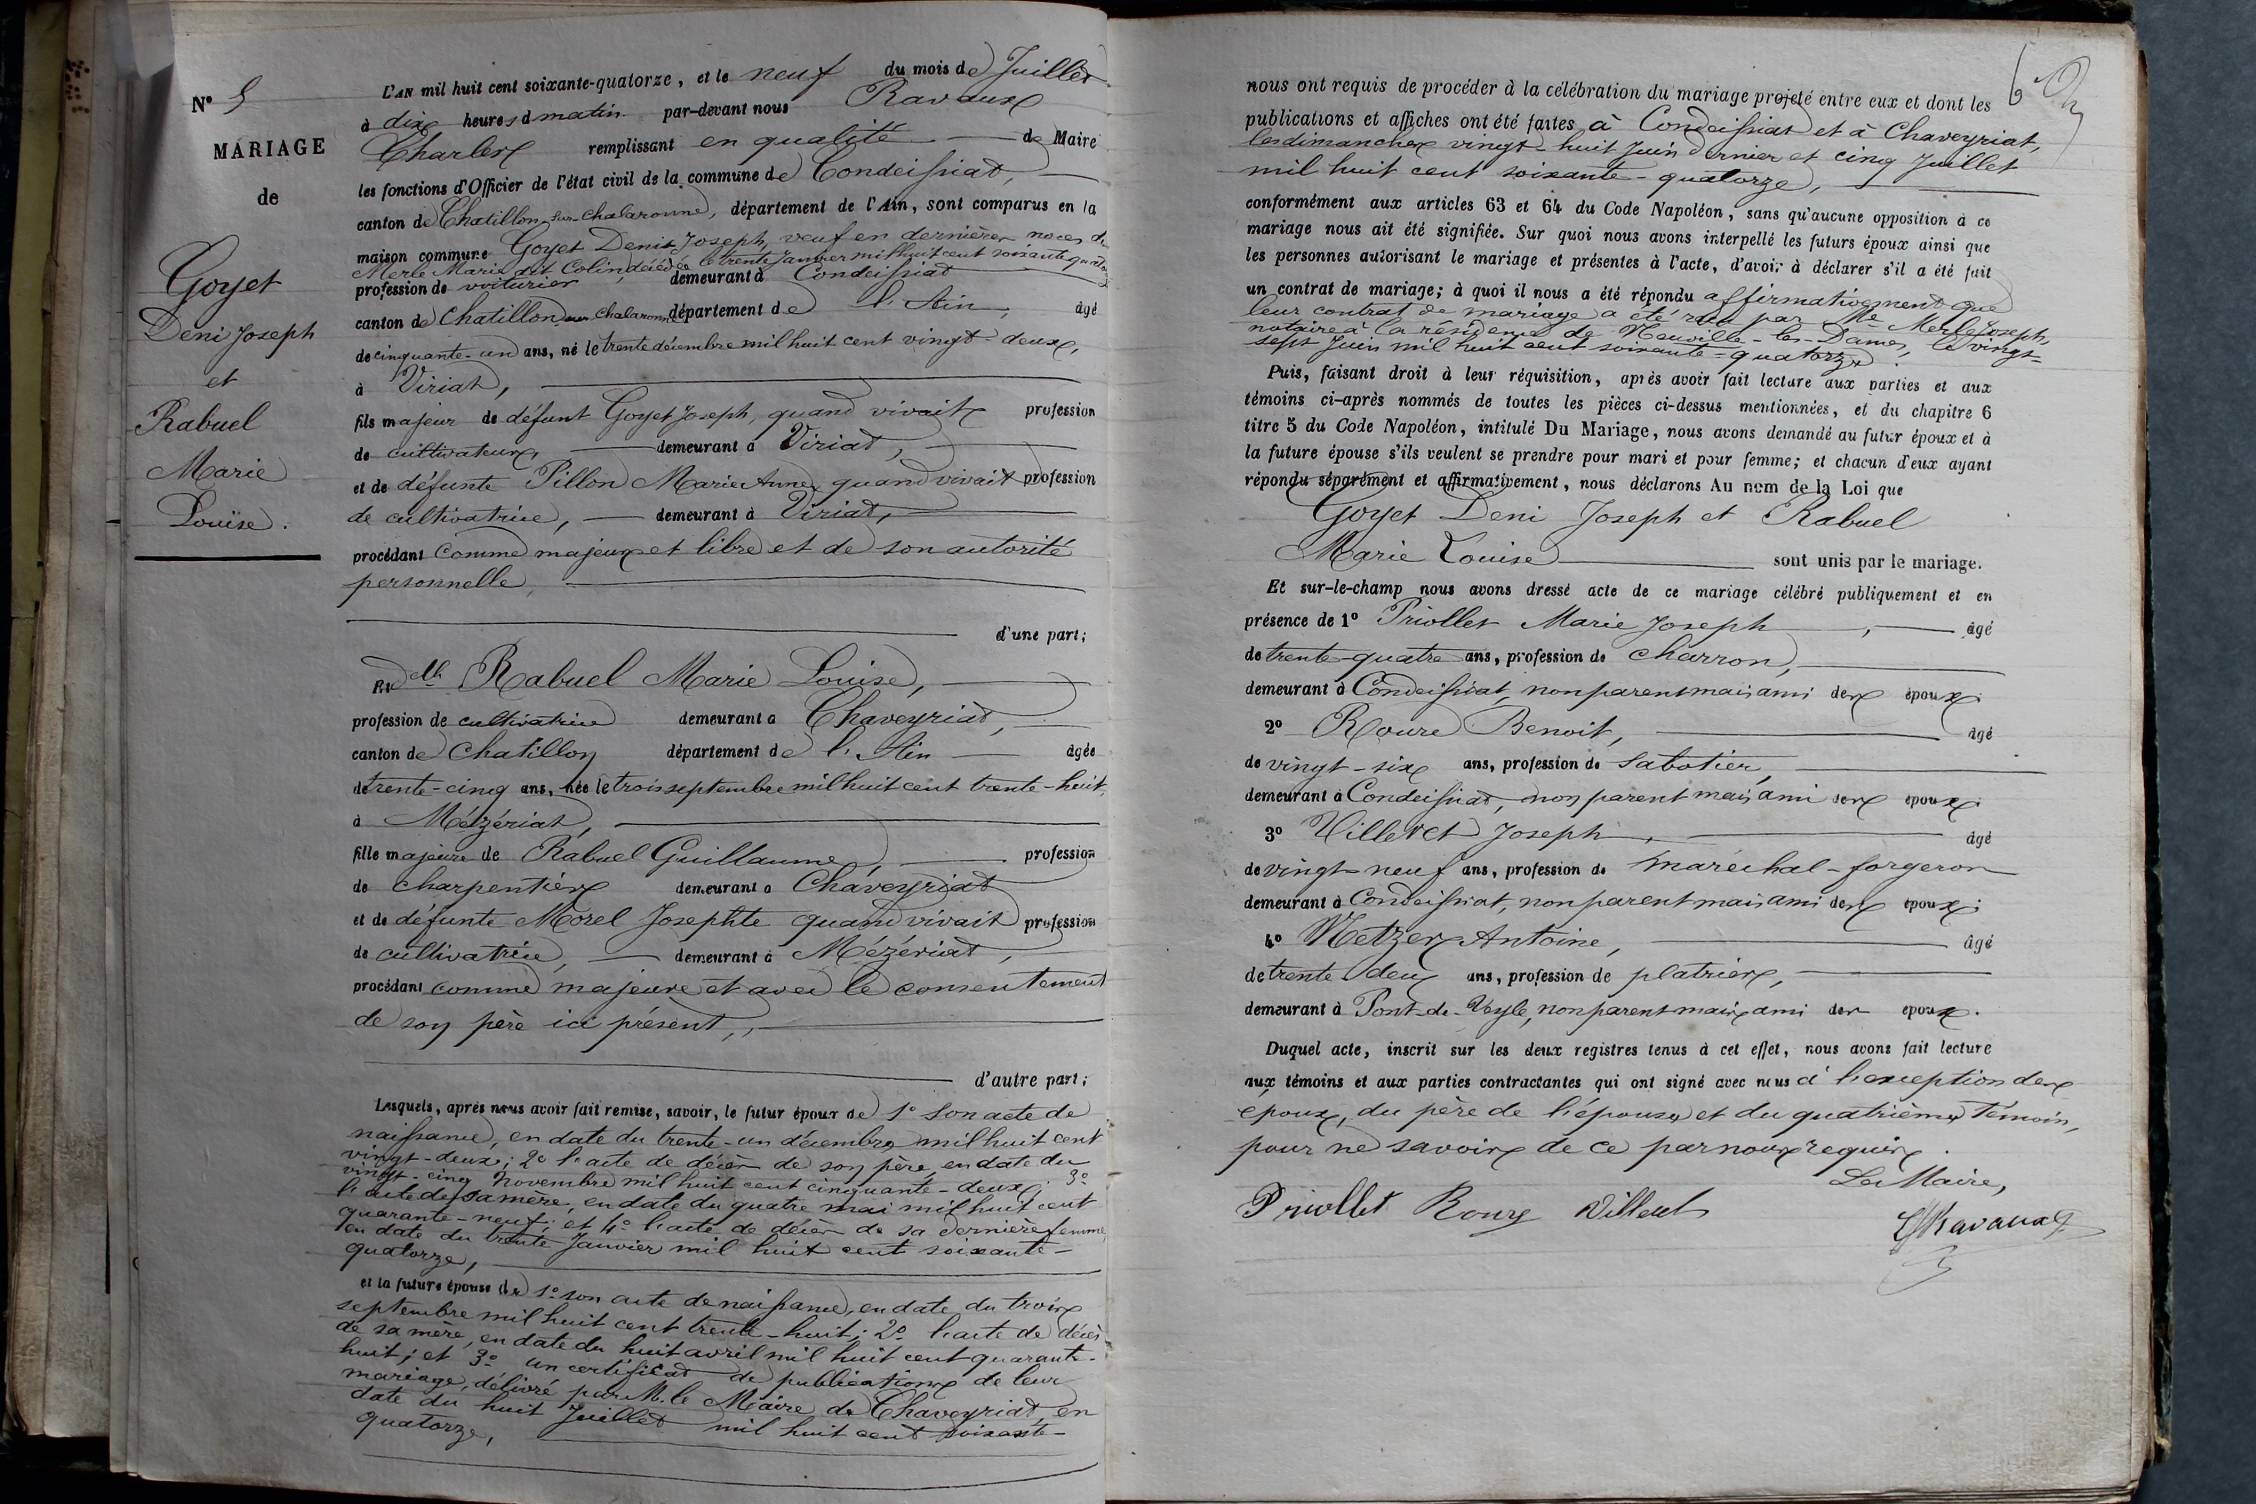 N° 5
MARIAGE
de
Goyet
Deni Joseph
et
Rabuel
Marie
Louise.
L'AN mil huit cent soixante-quatorze, et le neuf du mois de Juillet
à dix heures d matin par-devant nous Ravaux
Charles remplissant en qualité de Maire
les fonctions d'Officier de l'état civil de la commune de Condeissiat,
canton de Chatillon-sur-Chalaronne, département de l'Ain, sont comparus en la
maison commune Goyet Denis Joseph, veuf en dernières noces de
Merle Marie dit Colin décédée le trente Janvier mil huit cent soixante quatorze
profession de voiturier, demeurant à Condeissiat
canton de Chatillon sur Chalaronne département de l'Ain, âgé
de cinquante-un ans, né le trente décembre mil huit cent vingt-deux,
à Viriat,
fils majeur de défunt Goyet Joseph, quand vivait profession
de cultivateur, demeurant à Viriat,
et de défunte Pillon Marie Anne quand vivait profession
de cultivatrice, demeurant à Viriat,
procédant comme majeur et libre et de son autorité
personnelle,
d'une part;
Et delle Rabuel Marie Louise,
profession de cultivatrice demeurant à Chaveyriat,
canton de Chatillon département de l'Ain âgée
de trente-cinq ans, née le trois septembre mil huit cent trente-huit,
à Mézériat,
fille majeure de Rabuel Guillaume, profession
de charpentier demeurant à Chaveyriat
et de défunte Morel Josephte quand vivait profession
de cultivatrice, demeurant à Mézériat,
procédant comme majeure et avec le consentement
de son père ici présent,
d'autre part;
Lesquels, après nous avoir fait remise, savoir, le futur époux de 1° Son acte de
naissance, en date du trente-un décembre mil huit cent
vingt-deux; 2° l'acte de décès de son père, en date du
vingt-cinq novembre mil huit cent cinquante-deux; 3°
l'acte de sa mère, en date du quatre mai mil huit cent
quarante-neuf; et 4° l'acte de décès de sa dernière femme,
en date du trente Janvier mil huit cent soixante-
quatorze,
et la future épouse de 1° son acte de naissance, en date du trois
septembre mil huit cent trente-huit; 2° l'acte de décès
de sa mère, en date du huit avril mil huit cent quarante-
huit; et 3° un certificat de publication de leur
mariage, délivré par M. le Maire de Chaveyriat, en
date du huit Juillet mil huit cent soixante-
quatorze,
6
nous ont requis de procéder à la célébration du mariage projeté entre eux et dont les
publications et affiches ont été faites à Condeissiat et à Chaveyriat,
les dimanches vingt-huit Juin dernier et cinq Juillet
mil huit cent soixante-quatorze,
conformément aux articles 63 et 64 du Code Napoléon, sans qu'aucune opposition à ce
mariage nous ait été signifiée. Sur quoi nous avons interpellé les futurs époux ainsi que
les personnes autorisant le mariage et présentes à l'acte, d'avoir à déclarer s'il a été fait
un contrat de mariage; à quoi il nous a été répondu affirmativement que
leur contrat de mariage a été reçu par Me Merle Joseph,
notaire à la résidence de Neuville-les-Dames, le vingt-
sept Juin mil huit cent soixante-quatorze
Puis, faisant droit à leur réquisition, après avoir fait lecture aux parties et aux
témoins ci-après nommés de toutes les pièces ci-dessus mentionnées, et du chapitre 6
titre 5 du Code Napoléon, intitulé Du Mariage, nous avons demandé au futur époux et à
la future épouse s'ils veulent se prendre pour mari et pour femme; et chacun d'eux ayant
répondu séparément et affirmativement, nous déclarons Au nom de la Loi que
Goyet Deni Joseph et Rabuel
Marie Louise sont unis par le mariage.
Et sur-le-champ nous avons dressé acte de ce mariage célébré publiquement et en
présence de 1° Priollet Marie Joseph, âgé
de trente-quatre ans, profession de charron,
demeurant à Condeissiat, non parent mais ami des époux;
2° Roure Benoit, âgé
de vingt-six ans, profession de Sabotier,
demeurant à Condeissiat, non parent mais ami des époux;
3° Villeret Joseph, âgé
de vingt-neuf ans, profession de maréchal-forgeron
demeurant à Condeissiat, non parent mais ami des époux;
4° Metzer Antoine, âgé
de trente deux ans, profession de platrier,
demeurant à Pont-de-Veyle, non parent mais ami des époux.
Duquel acte, inscrit sur les deux registres tenus à cet effet, nous avons fait lecture
aux témoins et aux parties contractantes qui ont signé avec nous à l'exception des
époux, du père de l'épouse et du quatrième témoin,
pour ne savoir de ce par nous requis.
Le Maire,
Priollet Roure Villeret Ravaux